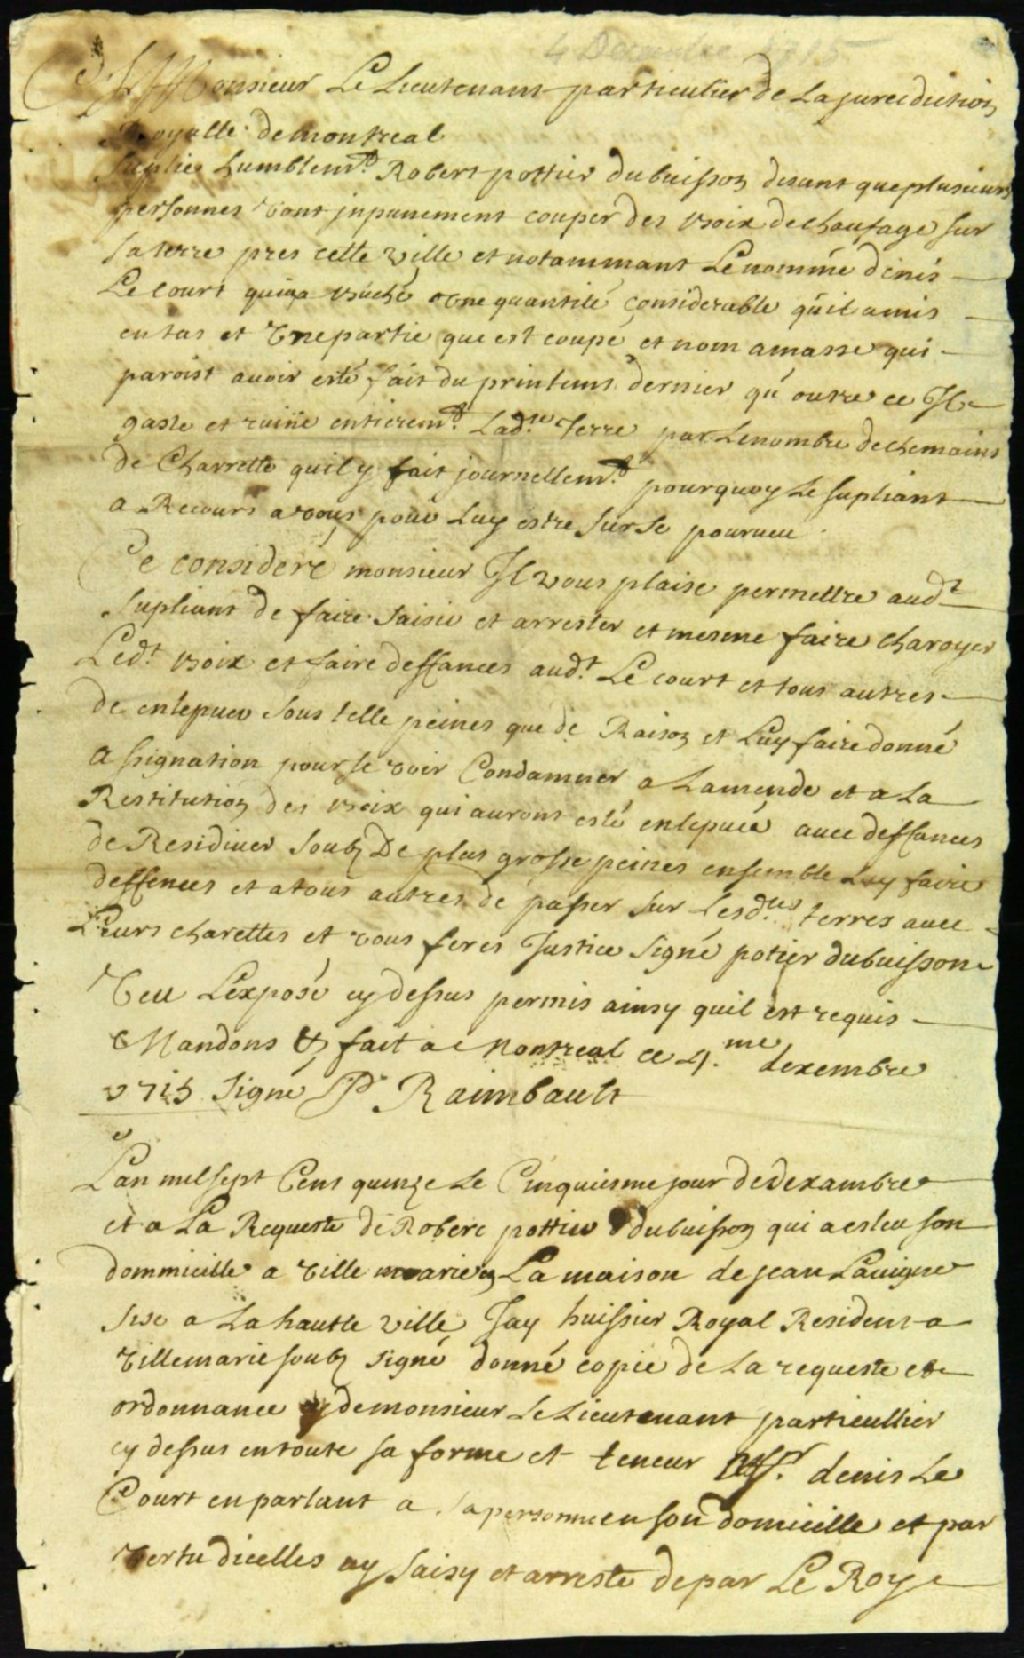 4 Decembre 1715
Monsieur Le Lieutenant particulier de La jurediction
Royalle de montreal
Suplie humblemt. Robert pottier dubuisson disant que plusieurs
personnes vont jnpunement couper des boix de chaufage sur
sa terre pres cette ville et notammant Le nommé dénis
Le court qui en a buché une quantité considerable qu'il a mis
en tas et une partie que est coupé et nom amassé qui
paroist avoir esté fait du printems dernier qu'outre ce Il
gaste et ruiine entieremt. Ladte. Terre par Le nombre de chemains
de Charrette quil y fait journellemt. pourquoy Le supliant
a Recours a vous pour Luy estre sur se pourveu
Ce consideré monsieur Il vous plaise permettre audt.
supliant de faire saisir et arrester et mesme faire charoyer
Ledt. boix et faire deffances audt. Le court et tous autres
de enlepver sous telle peines que de Raison et Luy faire donné
assignation pour se voir Condamner a Lamende et a La
Restitution des boix qui auront esté enlepvié avec deffances
de Residiver soubz De plus grosse peines ensemble Luy faire
deffences et a tous autres de passer sur Lesdtes. terres avec
Leurs charettes et vous feres Justice Signé potier dubuisson
Veu L'exposé cy dessus permis ainsy quil est requis
Mandons & fait a Montreal ce 4.me dexembre
1715 Signé P Raimbault
L'an mil sept Cens quinze Le Cinquiesme jour de dexambre
et a La Requeste de Robert pottier dubuisson qui a esleu son
dommicille a Ville marie en La maison de jean Lavigne
sise a La haute ville Jay huissier Royal Resident a
Villemarie soubz signé donné copie de La requeste et
ordonnance de monsieur Le Lieutenant particullier
cy dessus en toute sa forme et teneur denis Le
Court en parlant a sa personne en son domicille et par
Vertu dicelles ay saisy et arresté de par Le Roy